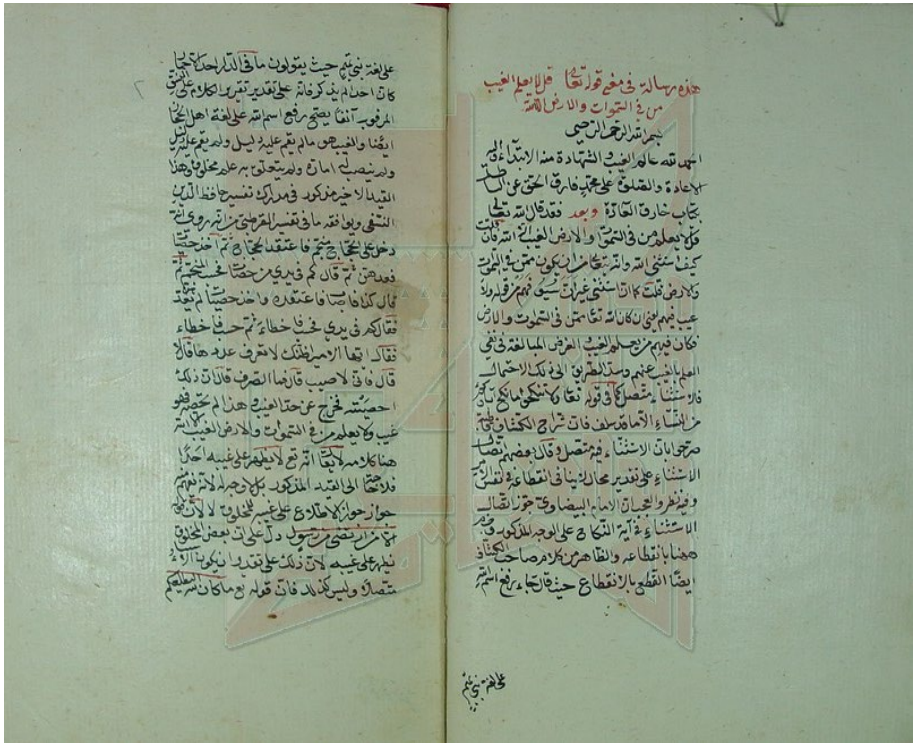 هذه رسالة في معنى قوله تعالى قل لا يعلم الغيب
من في السموات والارض الا الله
بسم الله الرحمن الرحيم
الحمد لله عالم الغيب والشهادة منه الابتداء واليه
الاعادة والصلوة على محمد فارق الحق عن الباطل
بكتاب خارق العادة وبعد فقد قال الله تعالى
قل لا يعلم من في السموات والارض الغيب الا الله فان قلت
كيف استثنى الله والله يتعالى من ان يكون ممن في السموات
والارض قلت كما استثنى غير ان سيوفهم من قوله ولا
عيب فيهم يعنى ان كان الله تعالى ممن في السموات والارض
فكان فيهم من يعلم الغيب الغرض المبالغة في نفى
العلم بالغيب عنهم وسد الطريق الى ذلك الاحتمال
فالاستثناء متصل كما في قوله تعالى ولا تنكحوا ما نكح اباؤكم
من النساء الا ما قد سلف فان شراح الكشاف قاطبة
صرحوا بان الاستثناء فيه متصل وقال بعضهم اتصال
الاستثناء على تقدير محال لا ينافى انقطاعه في نفس الامر
وفيه نظر والعجب ان الامام البيضاوى جوز اتصال
الاستثناء في آية النكاح على الوجه المذكور وجزم
ههنا بانقطاعه والظاهر من كلام صاحب الكشاف
ايضا القطع بالانقطاع حيث قال جاء رفع اسم الله
على لغة بنى تميم
على لغة بنى تميم حيث يقولون ما في الدار احد الا حمار
كان احد لم يذكر فانه على تقدير تقرير الكلام على المعنى
المرقوب آنفا يصح رفع اسم الله على لغة اهل الحجاز
ايضا والغيب هو ما لم يقم عليه دليل ولم يقم عليه
ولم ينصب له امارة ولم يتعلق به علم مخلوق وهذا
القيد الاخير مذكور في مدارك تفسير حافظ الدين
النسفى ويوافقه ما في تفسير القرطبى من انه روى انه
دخل على الحجاج منجم فاعتقله الحجاج ثم اخذ حصيات
فعدهن ثم قال كم في يدى من حصاة فحسب المنجم ثم
قال كذا فاصاب فاعتقله واخذ حصيات لم يعدهن
فقال كم في يدى فحسب فاخطاء ثم حسب فاخطاء
فقال ايها الامير اظنك لا تعرف عددها قال لا
قال فانى لا اصيب قال فما الفرق قال ان ذلك
احصيته فخرج عن حد الغيب وهذا لم تحصه فهو
غيب ولا يعلم من في السموات والارض الغيب الا الله
هنا كلامه لا يقال انه تع لا يظهر على غيبه احدا
فلا حاجة الى القيد المذكور بل لا وجه له لانه يفهم منه
جواز الاطلاع على غيبه للمخلوق لا لان قوله
الا من ارتضى من رسول دل على ان بعض المخلوق
يظهر على غيبه لان ذلك على تقدير ان يكون الاستثناء
متصلا وليس كذلك فان قوله تع ما كان الله ليطلعكم